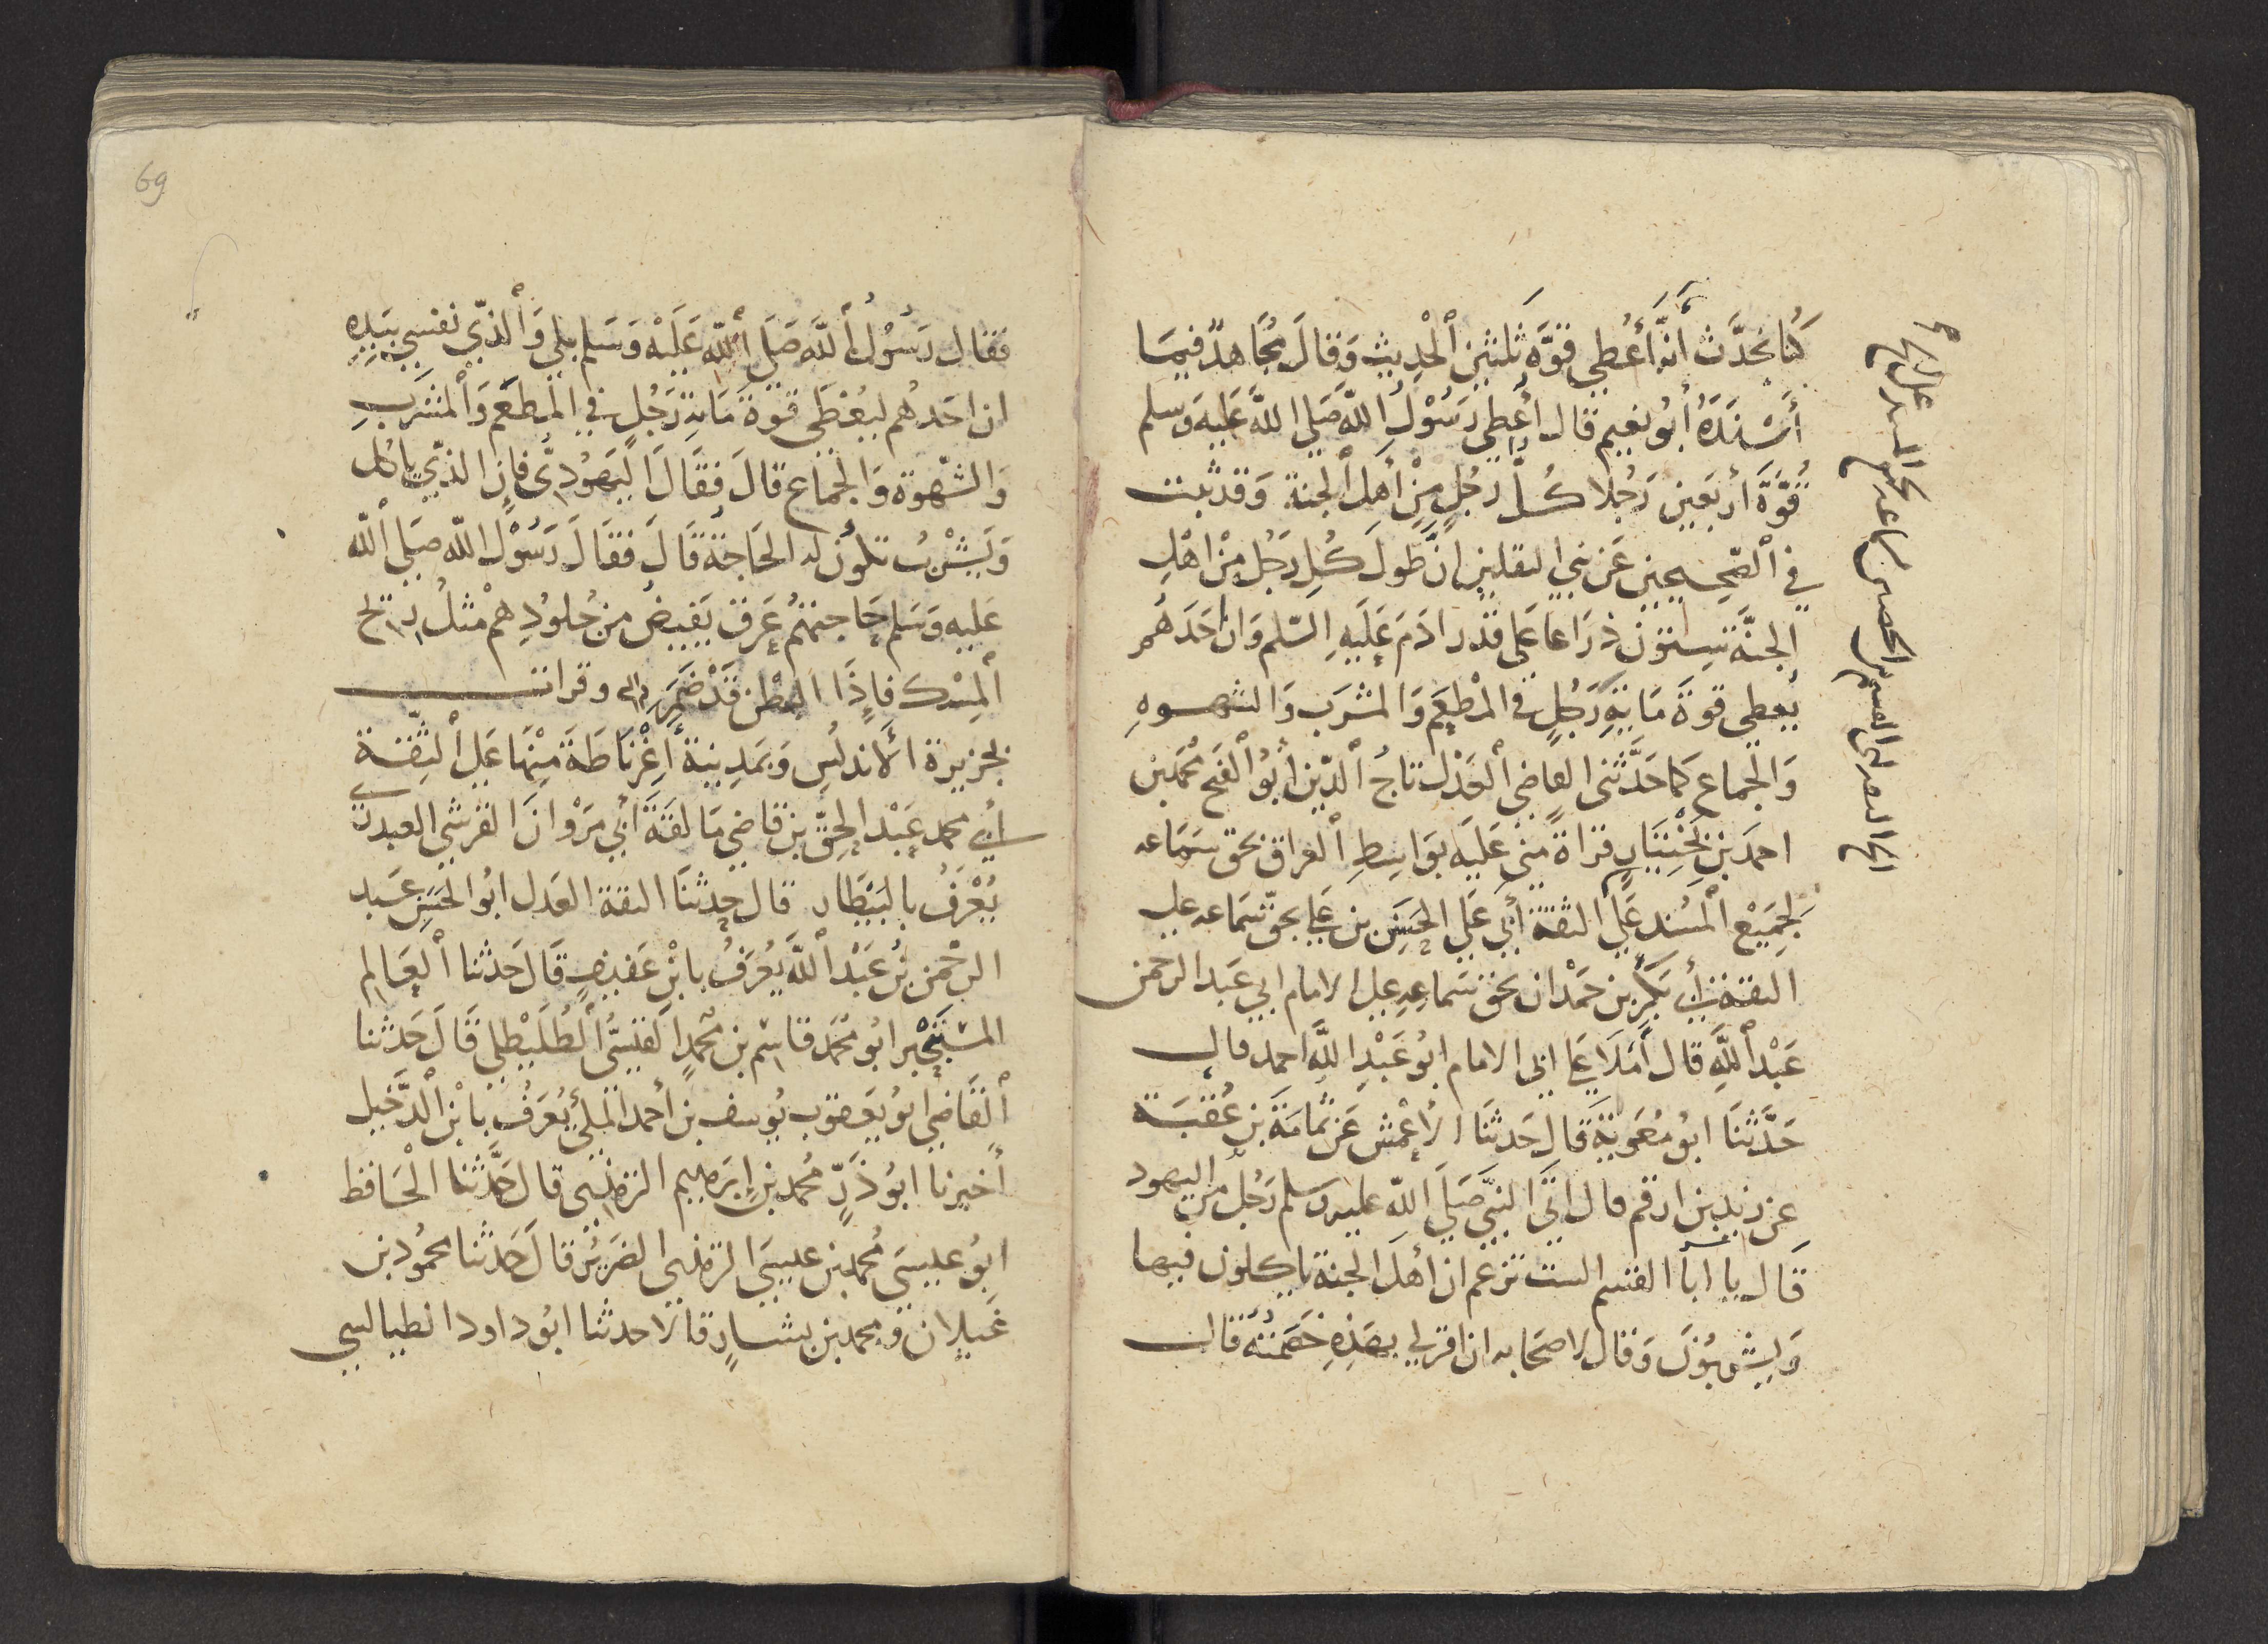 كُنا نَحدَّث أنهُ أُعْطِي قُوَّةَ ثَلثين الْحديث وَقالَ مُجَاهدٌ فيمَا
أَسْنَدَهُ أبُو نعيم قال أُعطي رَسُوْلُ اللَّه صَلي اللهُ عَليه وَسلم
قُوَّةَ أربَعين رَجُلا كُلُّ رَجُلٍ مِنْ أهلِ الجنة وَقد ثبت
في الصَّحِيحين عَن نبي الثقلين انَّ طولَ كُلِ رَجُلٍ مِنْ اهْلِ
الجنَّة سِتون ذرَاعا عَلى قدر ادَمَ عَلَيهِ السَّلم وَان احَدَهُم
يُعطي قوةَ مَايَةِ رَجُلٍ في المَطْعَم وَالمشرَب وَالشهوهِ
وَالجماع كما حَدَّثَني القاضي العَدْل تاجُ الدّين أبُو الفَتح محُمد بن
احمَد بن بَخْتِيَار قراةً مني عَليَه بوَاسِطِ العراق بحق سَمَاعه
لجمِيْع المُسند عَلى الثقة أبي عَلي الحسَن بن علي بحقّ سَمَاعه علي
الثقة أبي بَكرِ بن حَمْدان بحق سَماعِهِ علي الامام ابي عَبد الرحمن
عَبْد اللَّهِ قال أملَا عَلي ابي الامام ابو عَبْدِ اللَّه احمد قال
حَدَّثنَا ابوُ مُعَوِيَة قال حَدثنَا الأعْمش عَن ثمامَةَ بن عُقبَة
عن زيد بن ارقم قال اتَى النبيَّ صَلَي اللّه عليه وسلم رَجُلٌ من اليهود
قَال يا ابا القسم الست تزعم ان أهلَ الجنة ياكلون فيها
وَيشربُوْنَ وَقال لاصحَابه ان اقر لي بهَذِهِ خَصَمْتُه قال
فقال رَسُوُلُ اللَّه صَلَي اللّه عَلَيْه وَسَلم بلي وَالذي نفسِي بيَدِهِ
ان احَدهُم ليُعْطَى قوة مَايَةِ رَجُلٍ في المَطعَم وَالمَشرَبِ
وَالشهْوة وَالجماع قالَ فقَالَ اليَهوُديُّ فاِن الذي ياكل
وَيَشْرَبُ تكونُ له الحَاجَة قَالَ فقَالَ رَسُوْلُ اللّه صَلي اللّه
عَليه وَسَلم حَاجتهُم عَرق يَفيضُ من جُلوُدِ هم مثلُ ريح
المِسْك فاِذَا البطْن قَدْ ضَمَرَ وقرات
بجزيرة الأندلُس وَبمَدِينة أغِرْنَاطَةَ مِنهَا عَلي الثِقة
أبي محمد عَبْد الحَقّ بن قاضي مَالقَةَ أبي مَرْوانَ القرشي العبدري
يُعْرَفُ بالبَيْطَار قال حدثنَا الثقة العَدل ابُو الحَسَنِ عَبد
الرحْمن بنُ عَبْد اللَّه يُعْرَفُ بابْن عَفيفٍ قَال حَدثنا العَالِم
المسْتجير ابو محُمَد قاسِم بن محُمدٍ القَيسيُّ الطُلَيْطلي قَالَ حَدثنا
القَاضي ابو يَعقوب يُوسف بن أحمد المَلي يُعرَفُ بابْن الدَّخيل
أخبرنا ابوُ ذَرٍّ محُمد بن إبرَهيم الترمذي قال حَدَّثنا الْحَافظ
ابوُ عيسَى محُمد بن عيسَى الترمذي الضَرِيْرُ قالَ حَدثنا محمُود بن
غَيلان ومحمد بن بشارٍ قالا حدثنا ابُو داود الطيالسي
69